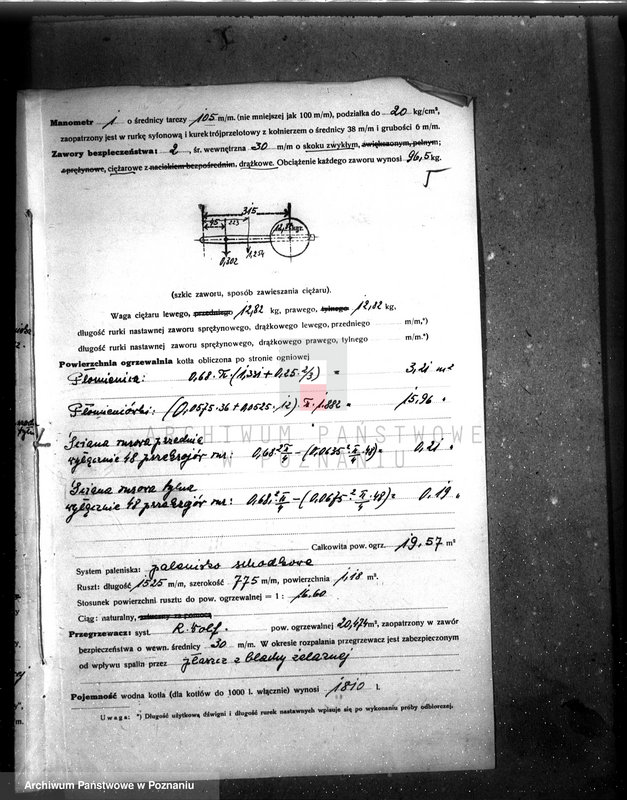 Manometr 1 o średnicy tarczy 105 m/m. (nie mniejszej jak 100 m/m), podziałka do 20 kg/cm²,
zaopatrzony jest w rurkę syfonową i kurek trójprzelotowy z kołnierzem o średnicy 38 m/m i grubości 6 m/m.
Zawory bezpieczeństwa: 2, śr. wewnętrzna 30 m/m o skoku zwykłym, zwiększonym, pełnym;
sprężynowe, ciężarowe z naciskiem bezpośrednim, drążkowe. Obciążenie każdego zaworu wynosi 96,5 kg.
315
45 223
12,82 kgr.
0,302 1,254
(szkic zaworu, sposób zawieszania ciężaru).
Waga ciężaru lewego, przedniego 12,82 kg, prawego, tylnego 12,82 kg,
długość rurki nastawnej zaworu sprężynowego, drążkowego lewego, przedniego m/m.*)
długość rurki nastawnej zaworu sprężynowego, drążkowego prawego, tylnego m/m.*)
Powierzchnia ogrzewalna kotła obliczona po stronie ogniowej
Płomienica: 0,68·π·(1,331+0,25·2/3) = 3,21 m²
Płomieniówki: (0,0575·36+0,0525·12)·π·1,882 = 15,96 "
ARCHIWUM PAŃSTWOWE
W POZNANIU
Ściana rurowa przednia
wyłącznie 48 przekrojów rur: 0,68² π/4 – (0,0635² π/4 · 48) = 0,21 "
Ściana rurowa tylna
wyłącznie 48 przekrojów rur: 0,68² π/4 – (0,0675² π/4 · 48) = 0,19 "
Całkowita pow. ogrz. 19,57 m²
System paleniska: palenisko schodkowe
Ruszt: długość 1525 m/m, szerokość 775 m/m, powierzchnia 1,18 m².
Stosunek powierzchni rusztu do pow. ogrzewalnej = 1: 16,60
Ciąg: naturalny, sztuczny za pomocą
Przegrzewacz: syst. R. Wolf. pow. ogrzewalnej 20,474 m², zaopatrzony w zawór
bezpieczeństwa o wewn. średnicy 30 m/m. W okresie rozpalania przegrzewacz jest zabezpieczonym
od wpływu spalin przez płaszcz z blachy żelaznej
Pojemność wodna kotła (dla kotłów do 1000 l. włącznie) wynosi 1810 l.
Uwaga: *) Długość użytkową dźwigni i długość rurek nastawnych wpisuje się po wykonaniu próby odbiorczej.
Archiwum Państwowe w Poznaniu